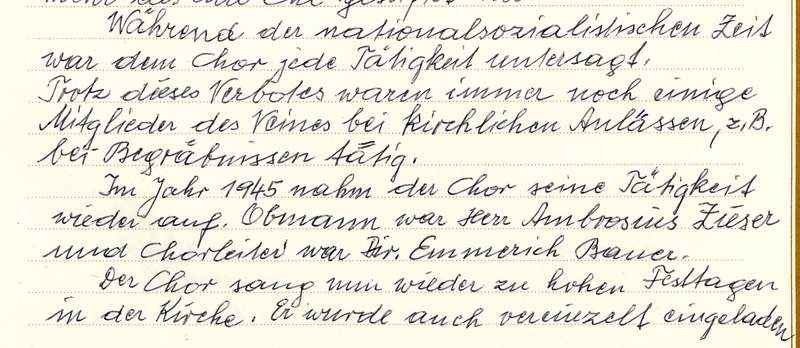 Während der nationalsozialistischen Zeit
war dem Chor jede Tätigkeit untersagt.
Trotz dieses Verbotes waren immer noch einige
Mitglieder des Veines bei kirchlichen Anlässen, z.B.
bei Begräbnissen tätig.
Im Jahr 1945 nahm der Chor seine Tätigkeit
wieder auf. Obmann war Herr Ambrosius Zieser
und Chorleiter war Dir. Emmerich Bauer.
Der Chor sang nun wieder zu hohen Festtagen
in der Kirche. Er wurde auch vereinzelt eingeladen